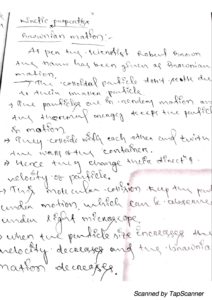 Kinetic properties
Brownian motion :-
As per the scientist Robert Brown
the name has been given as Brownian
motion.
→ The colloidal particle don't settle due
to their smaller particle.
→ The particles are in random motion and
the thermal energy keeps the particle
motion
→ They collide with each other and with
the wall of the container.
→ Hence they change their direct
velocity of particle.
→ This molecular collision keep the par
under motion which can be observed
under light microscope.
→ when the particle size increases the
velocity decreases and the brownia
motion decreases.
Scanned by TapScanner